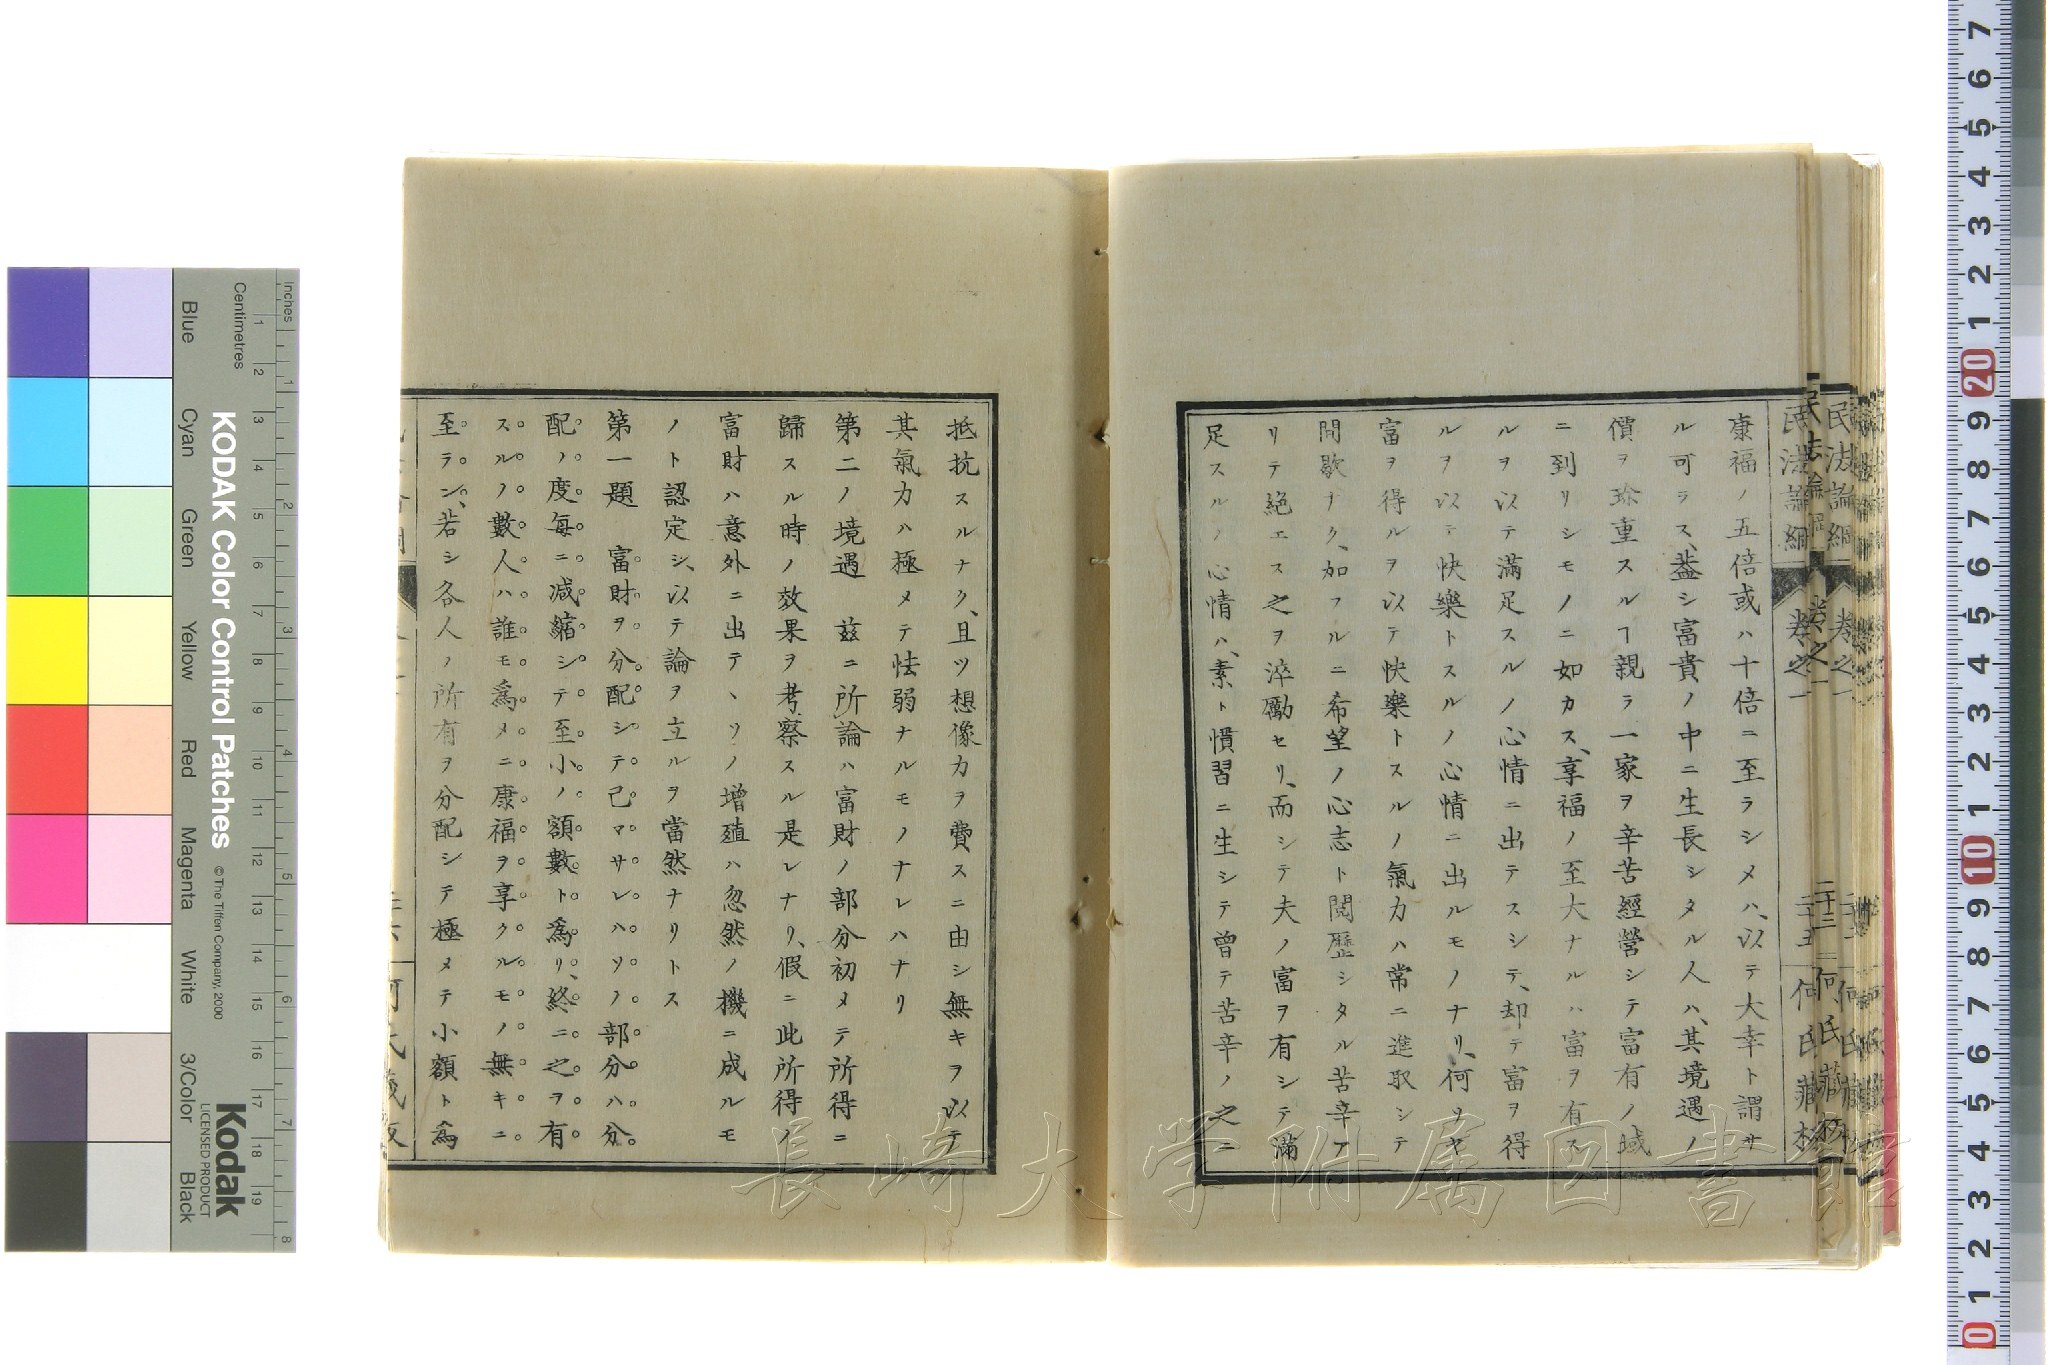 民法論綱 卷之一 二十五 何氏藏板
康福ノ五倍或ハ十倍ニ至ラシメハ、以テ大幸ト謂サ
ル可ラス、蓋シ富貴ノ中ニ生長シタル人ハ、其境遇ノ
價ヲ珍重スルヿ親ラ一家ヲ辛苦經營シテ富有ノ域
ニ到リシモノニ如カス、享福ノ至大ナルハ富ヲ有ス
ルヲ以テ滿足スルノ心情ニ出テスシテ、却テ富ヲ得
ルヲ以テ快樂トスルノ心情ニ出ルモノナリ、何ソヤ
富ヲ得ルヲ以テ快樂トスルノ氣力ハ常ニ進取シテ
間歇ナク、加フルニ希望ノ心志ト閲歷シタル苦辛ア
リテ絕エス之ヲ淬勵セリ、而シテ夫ノ富ヲ有シテ滿
足スルノ心情ハ、素ト慣習ニ生シテ曾テ苦辛ノ之ニ
抵抗スルナク、且ツ想像力ヲ費スニ由シ無キヲ以テ
其氣力ハ極メテ怯弱ナルモノナレハナリ
第二ノ境遇 玆ニ所論ハ富財ノ部分初メテ所得ニ
歸スル時ノ效果ヲ考察スル是レナリ、假ニ此所得ノ
富財ハ意外ニ出テ、ソノ增殖ハ忽然ノ機ニ成ルモ
ノト認定シ、以テ論ヲ立ルヲ當然ナリトス
第一題 富財ヲ分配シテ已マサレハソノ部分ハ分
配ノ度每ニ減縮シテ至小ノ額數ト爲リ、終ニ之ヲ有
スルノ數人ハ誰モ爲メニ康福ヲ享クルモノ無キニ
至ラン、若シ各人ノ所有ヲ分配シテ極メテ小額ト爲
Inches
Centimetres
KODAK Color Control Patches
© The Tiffen Company, 2000
Kodak
LICENSED PRODUCT
Blue Cyan Green Yellow Red Magenta White 3/Color Black
長崎大学附属図書館